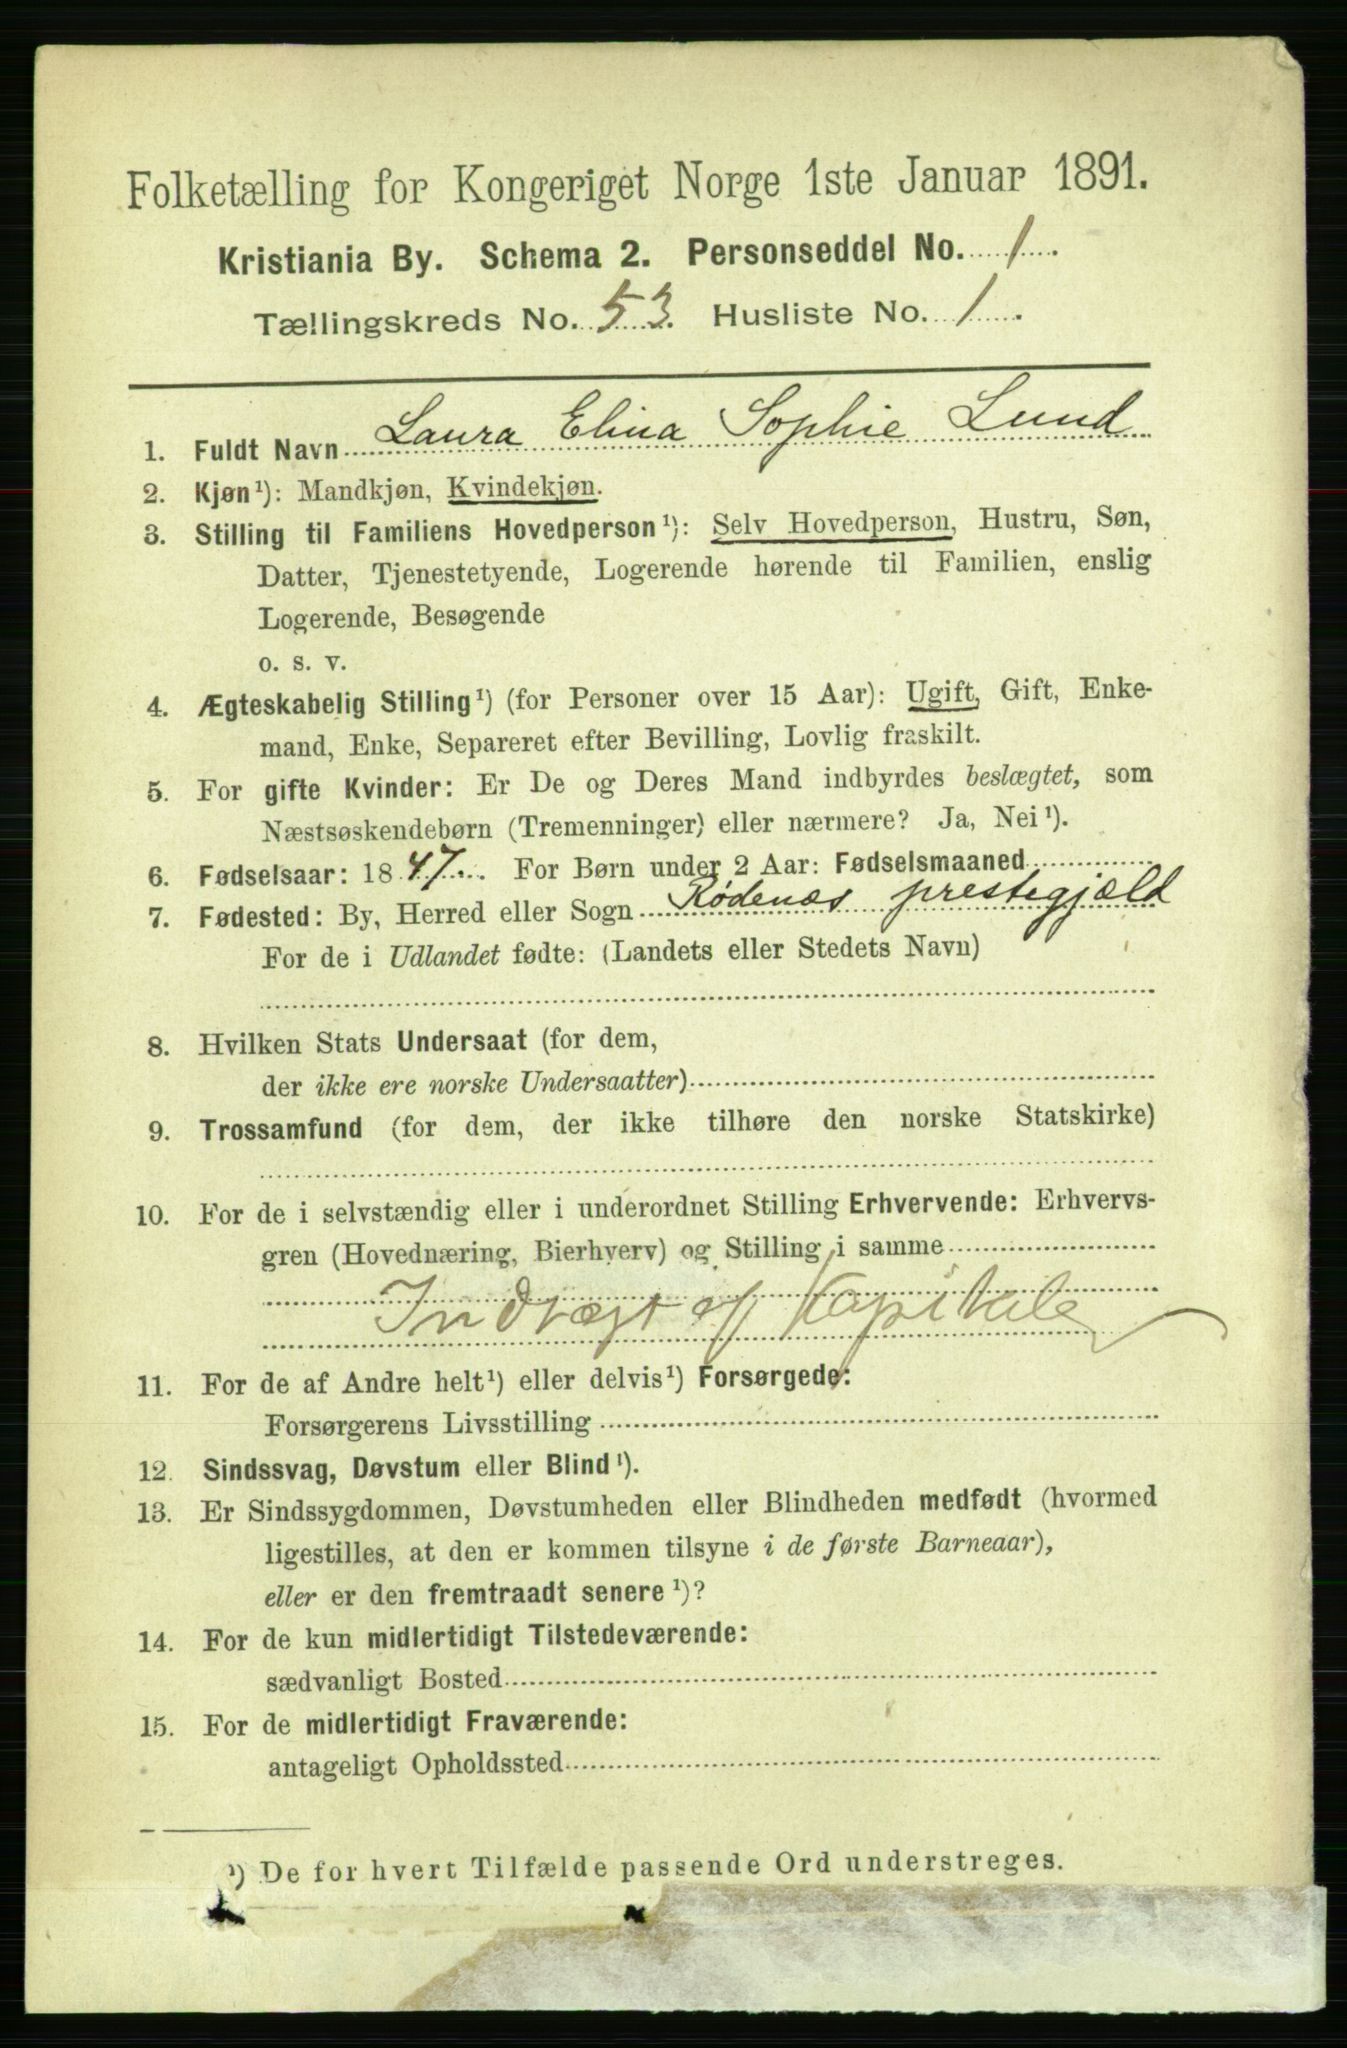 Folketælling for Kongeriget Norge 1ste Januar 1891.
Kristiania By. Schema 2. Personseddel No. 1.
Tællingskreds No. 53. Husliste No. 1.
1. Fuldt Navn Laura Elina Sophie Lund
2. Kjøn¹): Mandkjøn, Kvindekjøn.
3. Stilling til Familiens Hovedperson¹): Selv Hovedperson, Hustru, Søn,
Datter, Tjenestetyende, Logerende hørende til Familien, enslig
Logerende, Besøgende
o. s. v.
4. Ægteskabelig Stilling¹) (for Personer over 15 Aar): Ugift, Gift, Enke-
mand, Enke, Separeret efter Bevilling, Lovlig fraskilt.
5. For gifte Kvinder: Er De og Deres Mand indbyrdes beslægtet, som
Næstsøskendebørn (Tremenninger) eller nærmere? Ja, Nei¹).
6. Fødselsaar: 1847. For Børn under 2 Aar: Fødselsmaaned
7. Fødested: By, Herred eller Sogn Rødenæs prestegjæld
For de i Udlandet fødte: (Landets eller Stedets Navn)
8. Hvilken Stats Undersaat (for dem,
der ikke ere norske Undersaatter)
9. Trossamfund (for dem, der ikke tilhøre den norske Statskirke)
10. For de i selvstændig eller i underordnet Stilling Erhvervende: Erhvervs-
gren (Hovednæring, Bierhverv) og Stilling i samme
Indtægt af Kapitale
11. For de af Andre helt¹) eller delvis¹) Forsørgede:
Forsørgerens Livsstilling
12. Sindssvag, Døvstum eller Blind¹).
13. Er Sindssygdommen, Døvstumheden eller Blindheden medfødt (hvormed
ligestilles, at den er kommen tilsyne i de første Barneaar),
eller er den fremtraadt senere¹)?
14. For de kun midlertidigt Tilstedeværende:
sædvanligt Bosted
15. For de midlertidigt Fraværende:
antageligt Opholdssted
¹) De for hvert Tilfælde passende Ord understreges.